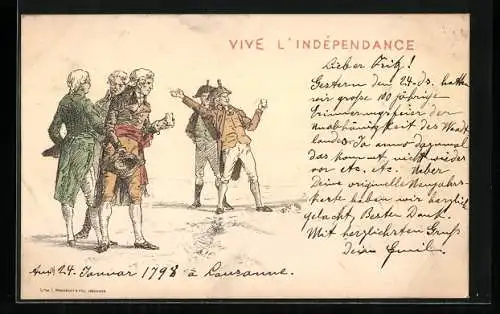 VIVE L'INDÉPENDANCE
Lieber Fritz!
Gestern den 24. ds. hatten
wir große 100 jährige
Erinnerungsfeier der
Unabhängigkeit des Waadt
landes. Ja anno dazumal
das kommt nicht wieder
vor etc. etc. Ueber
Deine originelle Neujahrs-
karte haben wir herzlich
gelacht, Besten Dank.
Mit herzlichstem Gruß
Dein Emil.
24. Januar 1798 à Lausanne.